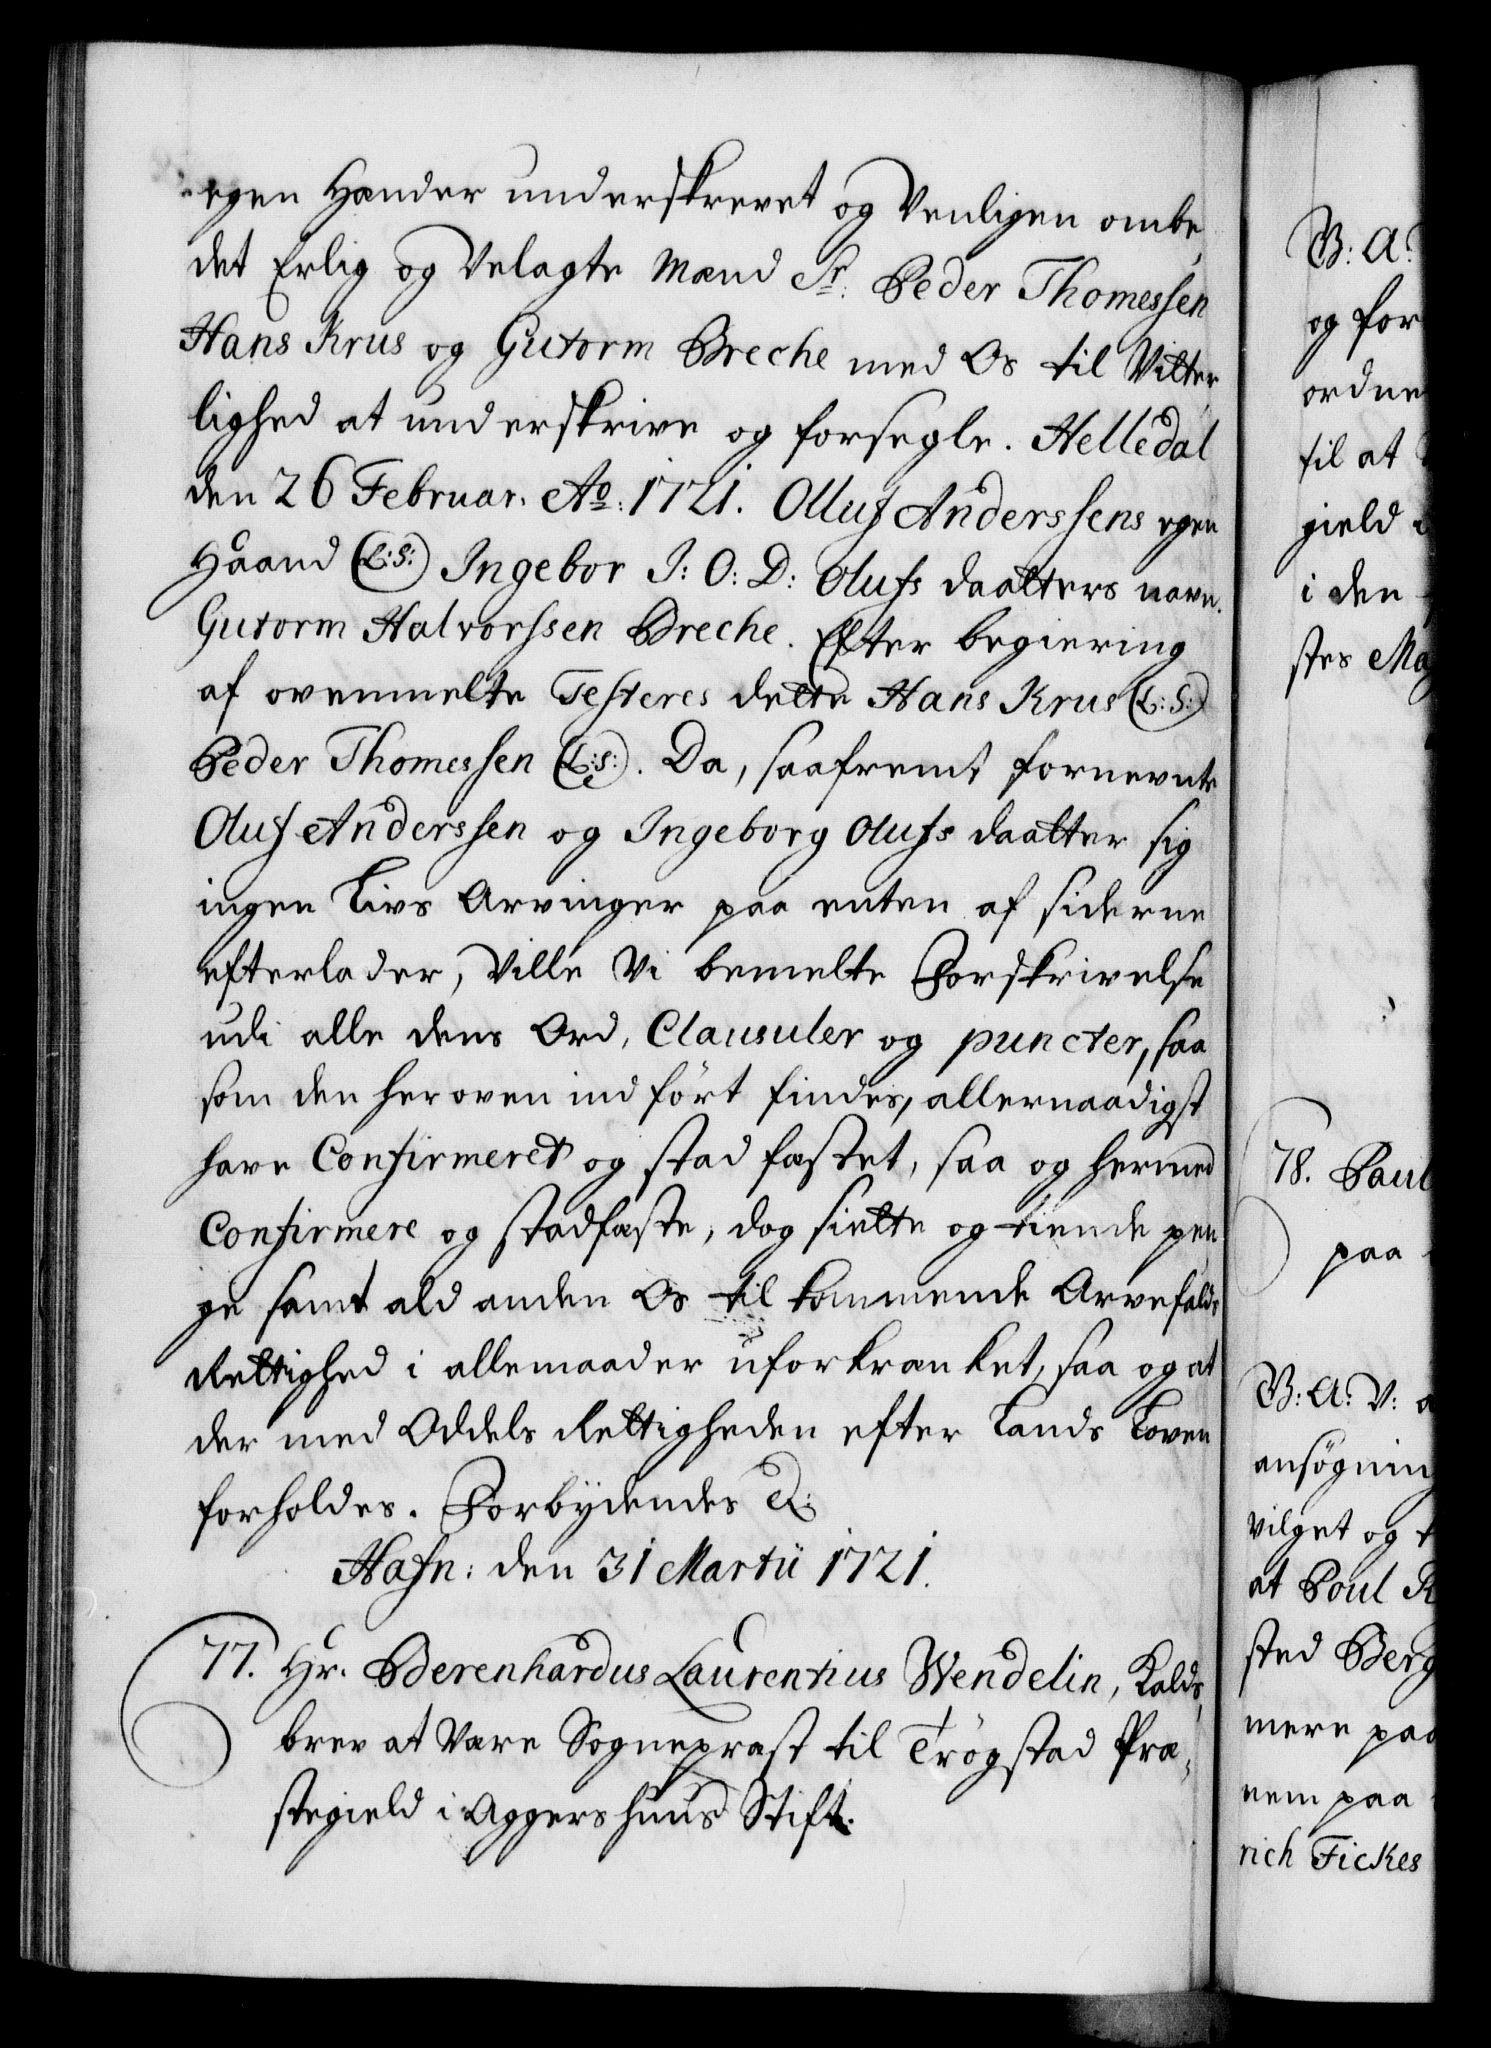 egen Hænder underskrevet og Venligen ombe,
det Erlig og Velagte Mænd Sr. Peder Thomessen
Hans Krus og Gutorm Breche med Os til Vitter,
lighed at underskrive og forsegle. Helledal
den 26 Februar. Ao: 1721. Olluf Anderssens egen
Haand (L:S:) Ingebor I: O: D: Olufs daatters navn.
Gutorm Halvorssen Breche. Efter begiering
af ovenmelte Testeres dette Hans Krus (L:S:)
Peder Thomessen (L:S:). Da, saafremt fornevnte
Oluf Anderssen og Ingeborg Olufs daatter sig
ingen Livs Arvinger paa enten af siderne
efterlader, Ville Vi bemelte Forskrivelse
udi alle dens Ord, Clausuler og puncter, saa
som den her oven indført findes, allernaadigst
have Confirmeret og stadfæstet, saa og hermed
Confirmere og stadfæste, dog siette og tiende pen
ge samt ald anden Os tilkommende Arvefalds
Rettighed i allemaader uforkrænket, saa og at
der med Oddels Rettigheden efter Lands Loven
forholdes. Forbydendes &:
Hafn: den 31 Martii 1721.
77. Hr. Berenhardus Laurentius Wendelin, Kalds,
brev at Være Sognepræst til Trøgstad Præ,
stegield i Aggershuus Stift.
B: A:
og for
ordne
til at
gield
i den
stes Ma
78. Paul
paa
B: A: V: a
ansøgning
vilget og t
at Poul R
sted Berg
mere paa
nem paa
rich Fickes